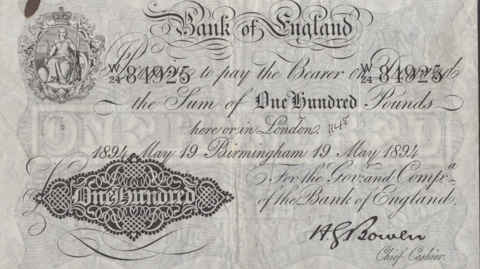 Bank of England
W/24 84925 W/24 84925
Promise to pay the Bearer on Demand
the Sum of One Hundred Pounds
here or in London 1145
1894 May 19 Birmingham 19 May 1894
For the Govr. and Compa.
of the Bank of England.
One Hundred
H G Bowen
Chief Cashier.